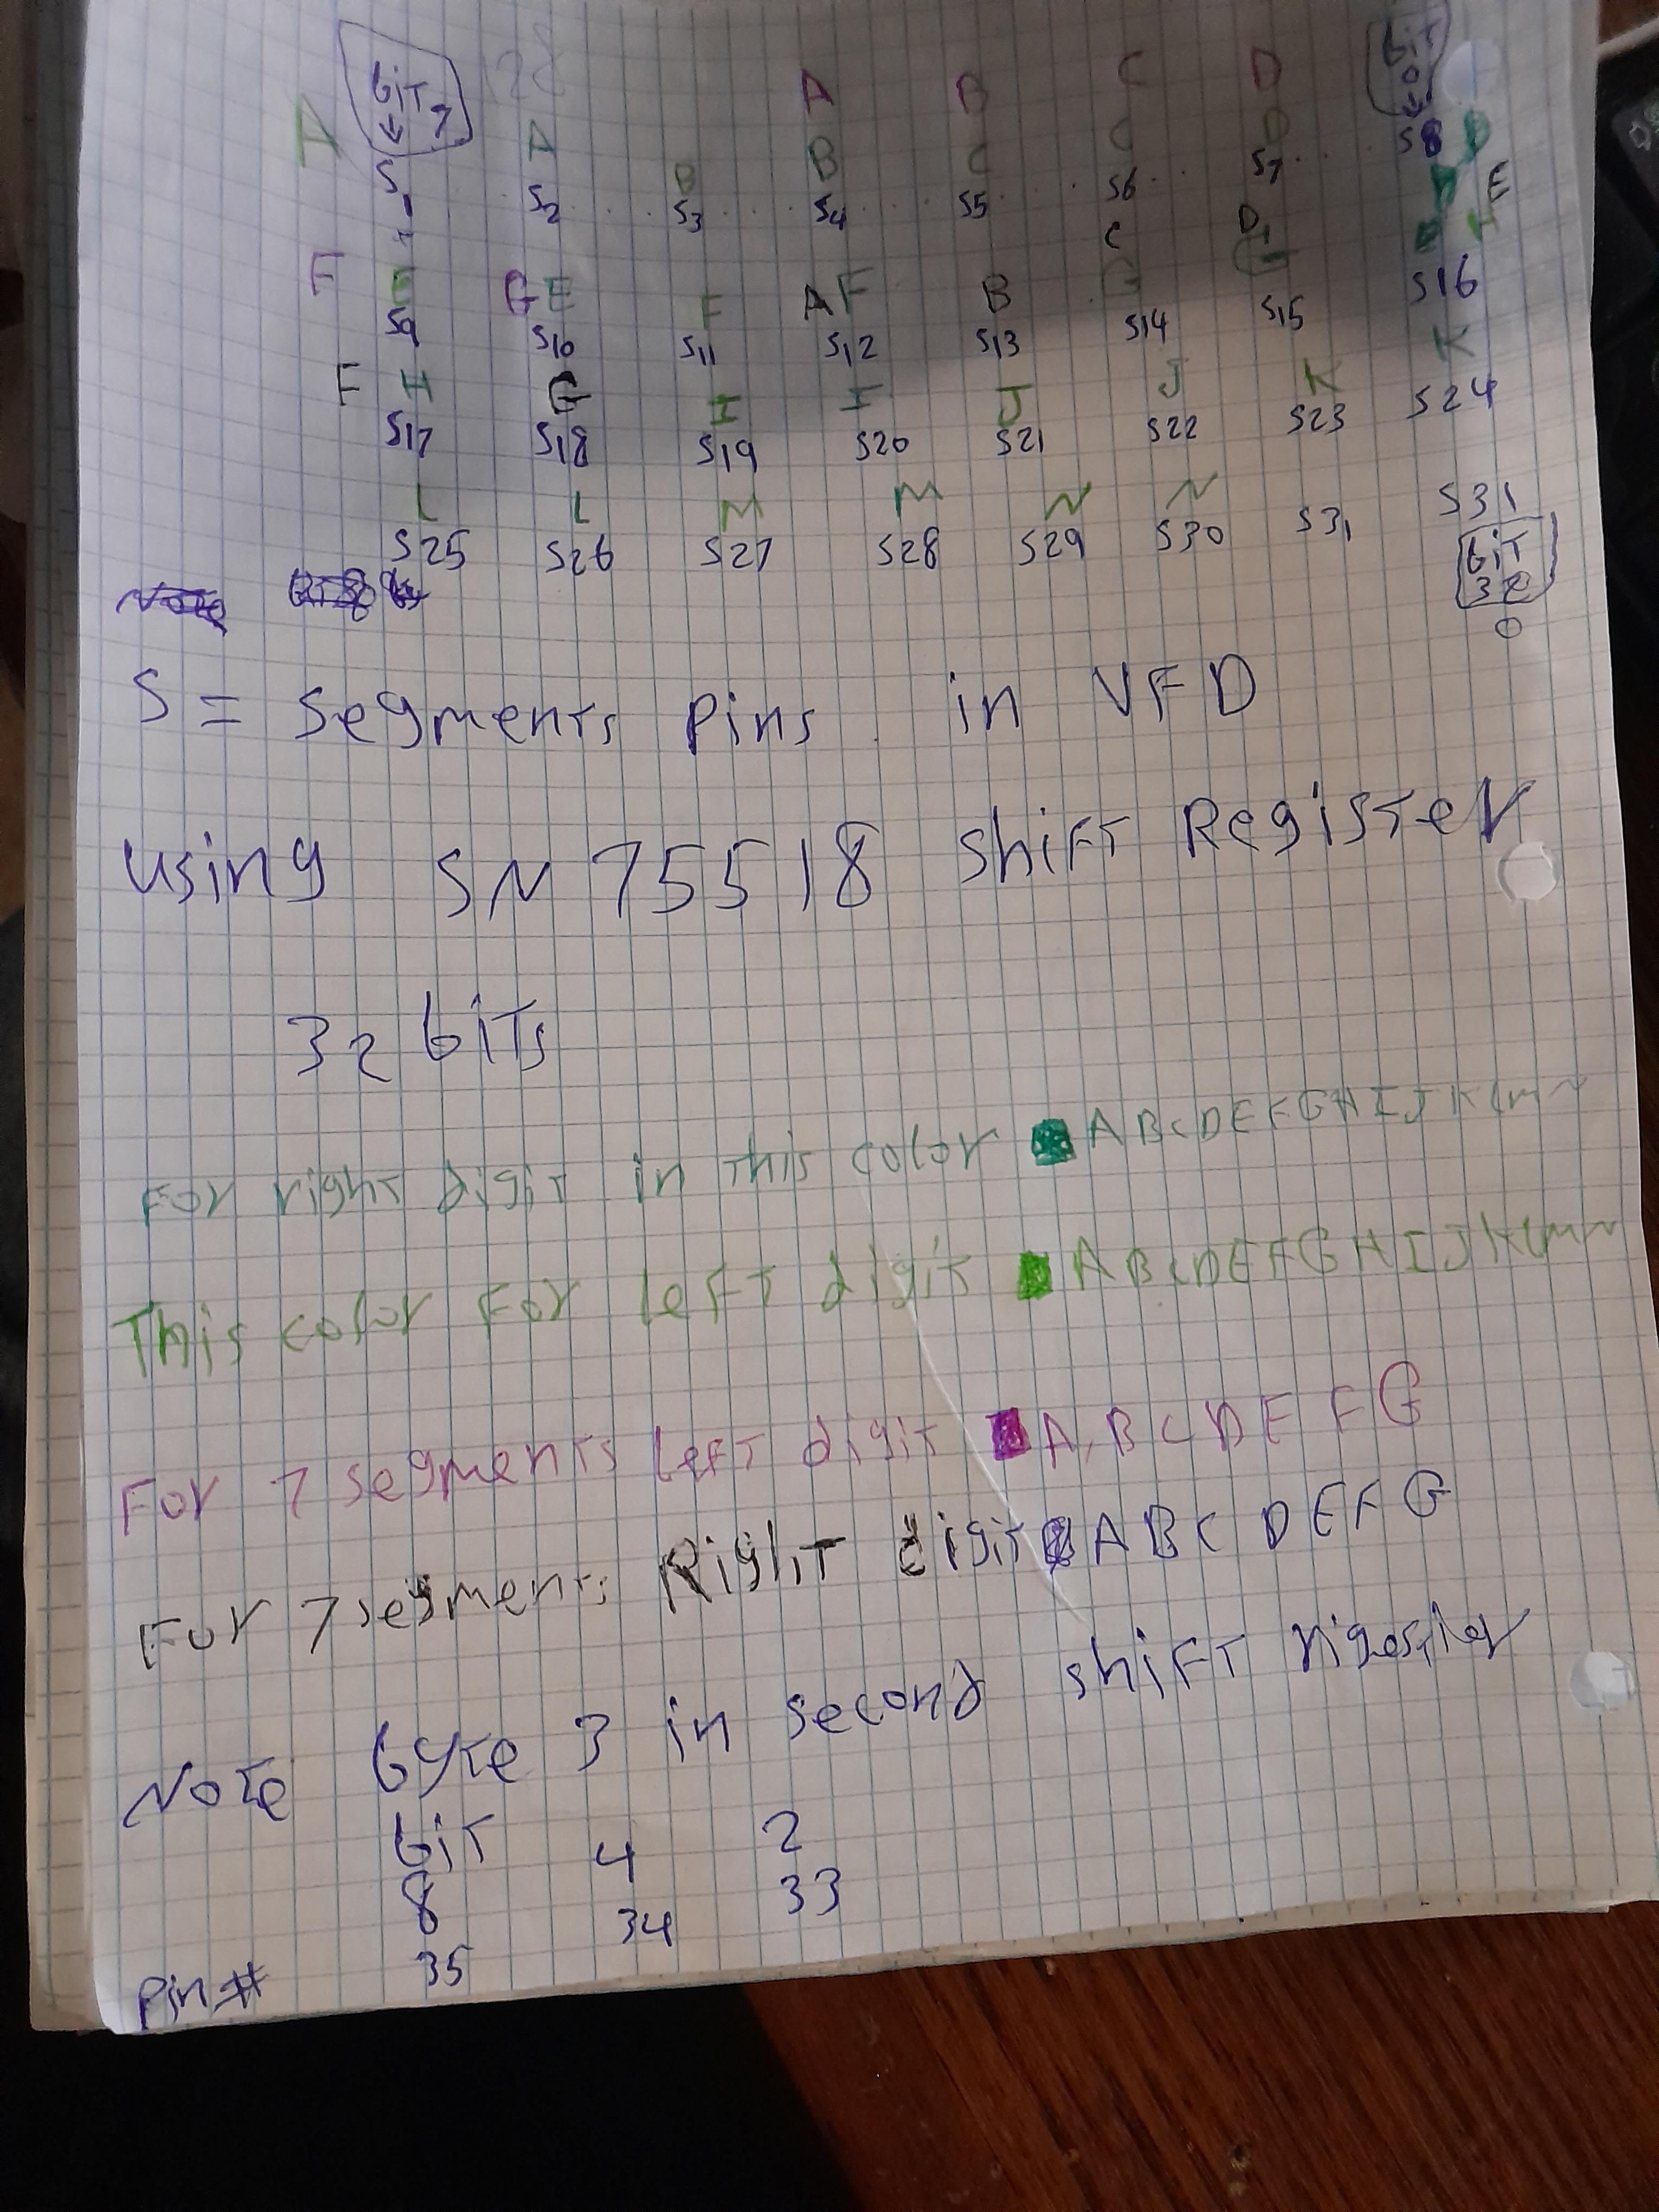 bit 7 A B C D bit 0
A A B C C D D
S1 S2 B S3 S4 S5 S6 S7 S8 E
C D
F E GE F AF B G G H
S9 S10 S11 S12 S13 S14 S15 S16
F H G I I J J K K
S17 S18 S19 S20 S21 S22 S23 S24
L L M M N N
S25 S26 S27 S28 S29 S30 S31 S31
bit 32
0
S = segments Pins in VFD
using SN 75518 shift Register
32 bits
For right digit in this color A B C D E F G H I J K L M N
This color For left digit A B C D E F G H I J K L M N
For 7 segments left digit A, B C D E F G
For 7 segments Right digit A B C D E F G
Note byte 3 in second shift
bit 4 2
8 34 33
Pin# 35